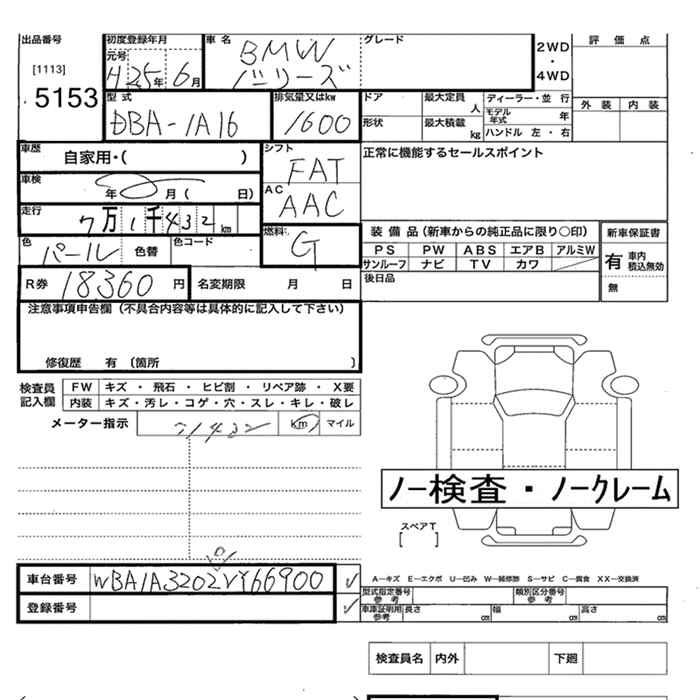 出品番号 初度登録年月 車名 グレード 評価点
[1113] 元号 BMW 2WD
5153 H25年6月 1シリーズ ・ 4WD 外装 内装
型式 排気量又はkw ドア 最大定員 人 ディーラー・並行
DBA-1A16 1600 形状 最大積載 kg モデル年式 年
ハンドル 左・右
車歴 自家用・( ) シフト FAT 正常に機能するセールスポイント
車検 年 月( 日) AC AAC
走行 7万1千432km 燃料 G 装備品(新車からの純正品に限り〇印) 新車保証書
色 パール 色替 色コード PS PW ABS エアB アルミW 有 車内積込無効
サンルーフ ナビ TV カワ 無
R券 18360円 名変期限 月 日 後日品
注意事項申告欄(不具合内容等は具体的に記入して下さい)
修復歴 有 〔箇所 〕
検査員記入欄 FW キズ・飛石・ヒビ割・リペア跡・X要
内装 キズ・汚レ・コゲ・穴・スレ・キレ・破レ
メーター指示 71432 km マイル
ノー検査・ノークレーム
スペアT
[ ]
車台番号 A―キズ E―エクボ U―凹み W―補修跡 S―サビ C―腐食 XX―交換済
登録番号 型式指定番号参考 類別区分番号参考
車庫証明用参考 長さ cm 幅 cm 高さ cm
検査員名 内外 下廻